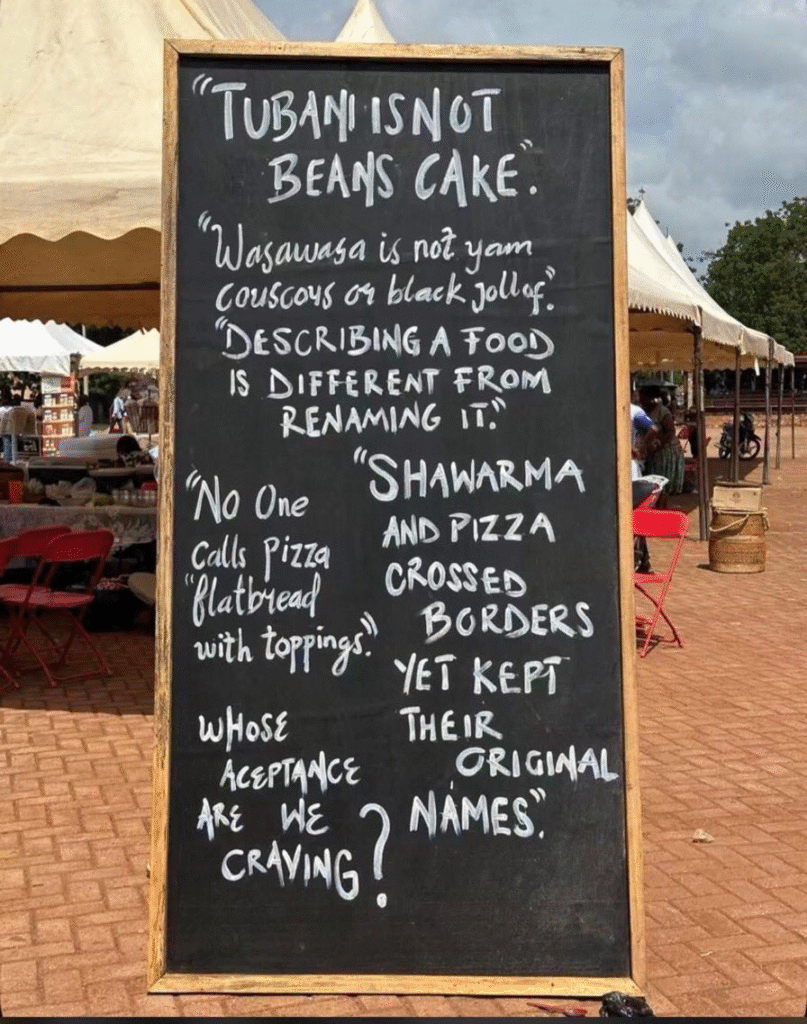 "TUBANI IS NOT
BEANS CAKE".
"Wasawasa is not yam
couscous or black jollof".
"DESCRIBING A FOOD
IS DIFFERENT FROM
RENAMING IT."
"No One
calls pizza
"flatbread
with toppings."
WHOSE
ACEPTANCE
ARE WE
CRAVING?
"SHAWARMA
AND PIZZA
CROSSED
BORDERS
YET KEPT
THEIR
ORIGINAL
NAMES".